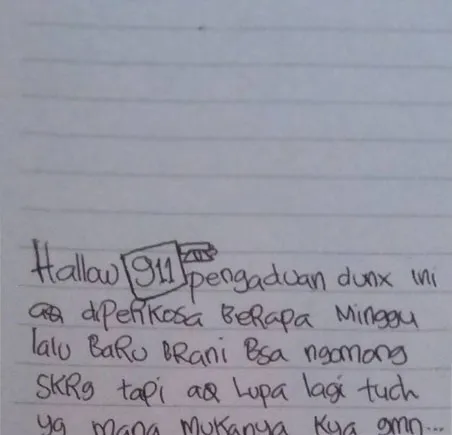 Hallaw 911 pengaduan dunx ini
aq diperkosa BeRapa Minggu
lalu BaRu BRani Bsa ngomong
SKRg tapi aq Lupa lagi tuch
yg mana mukanya kya gmn...